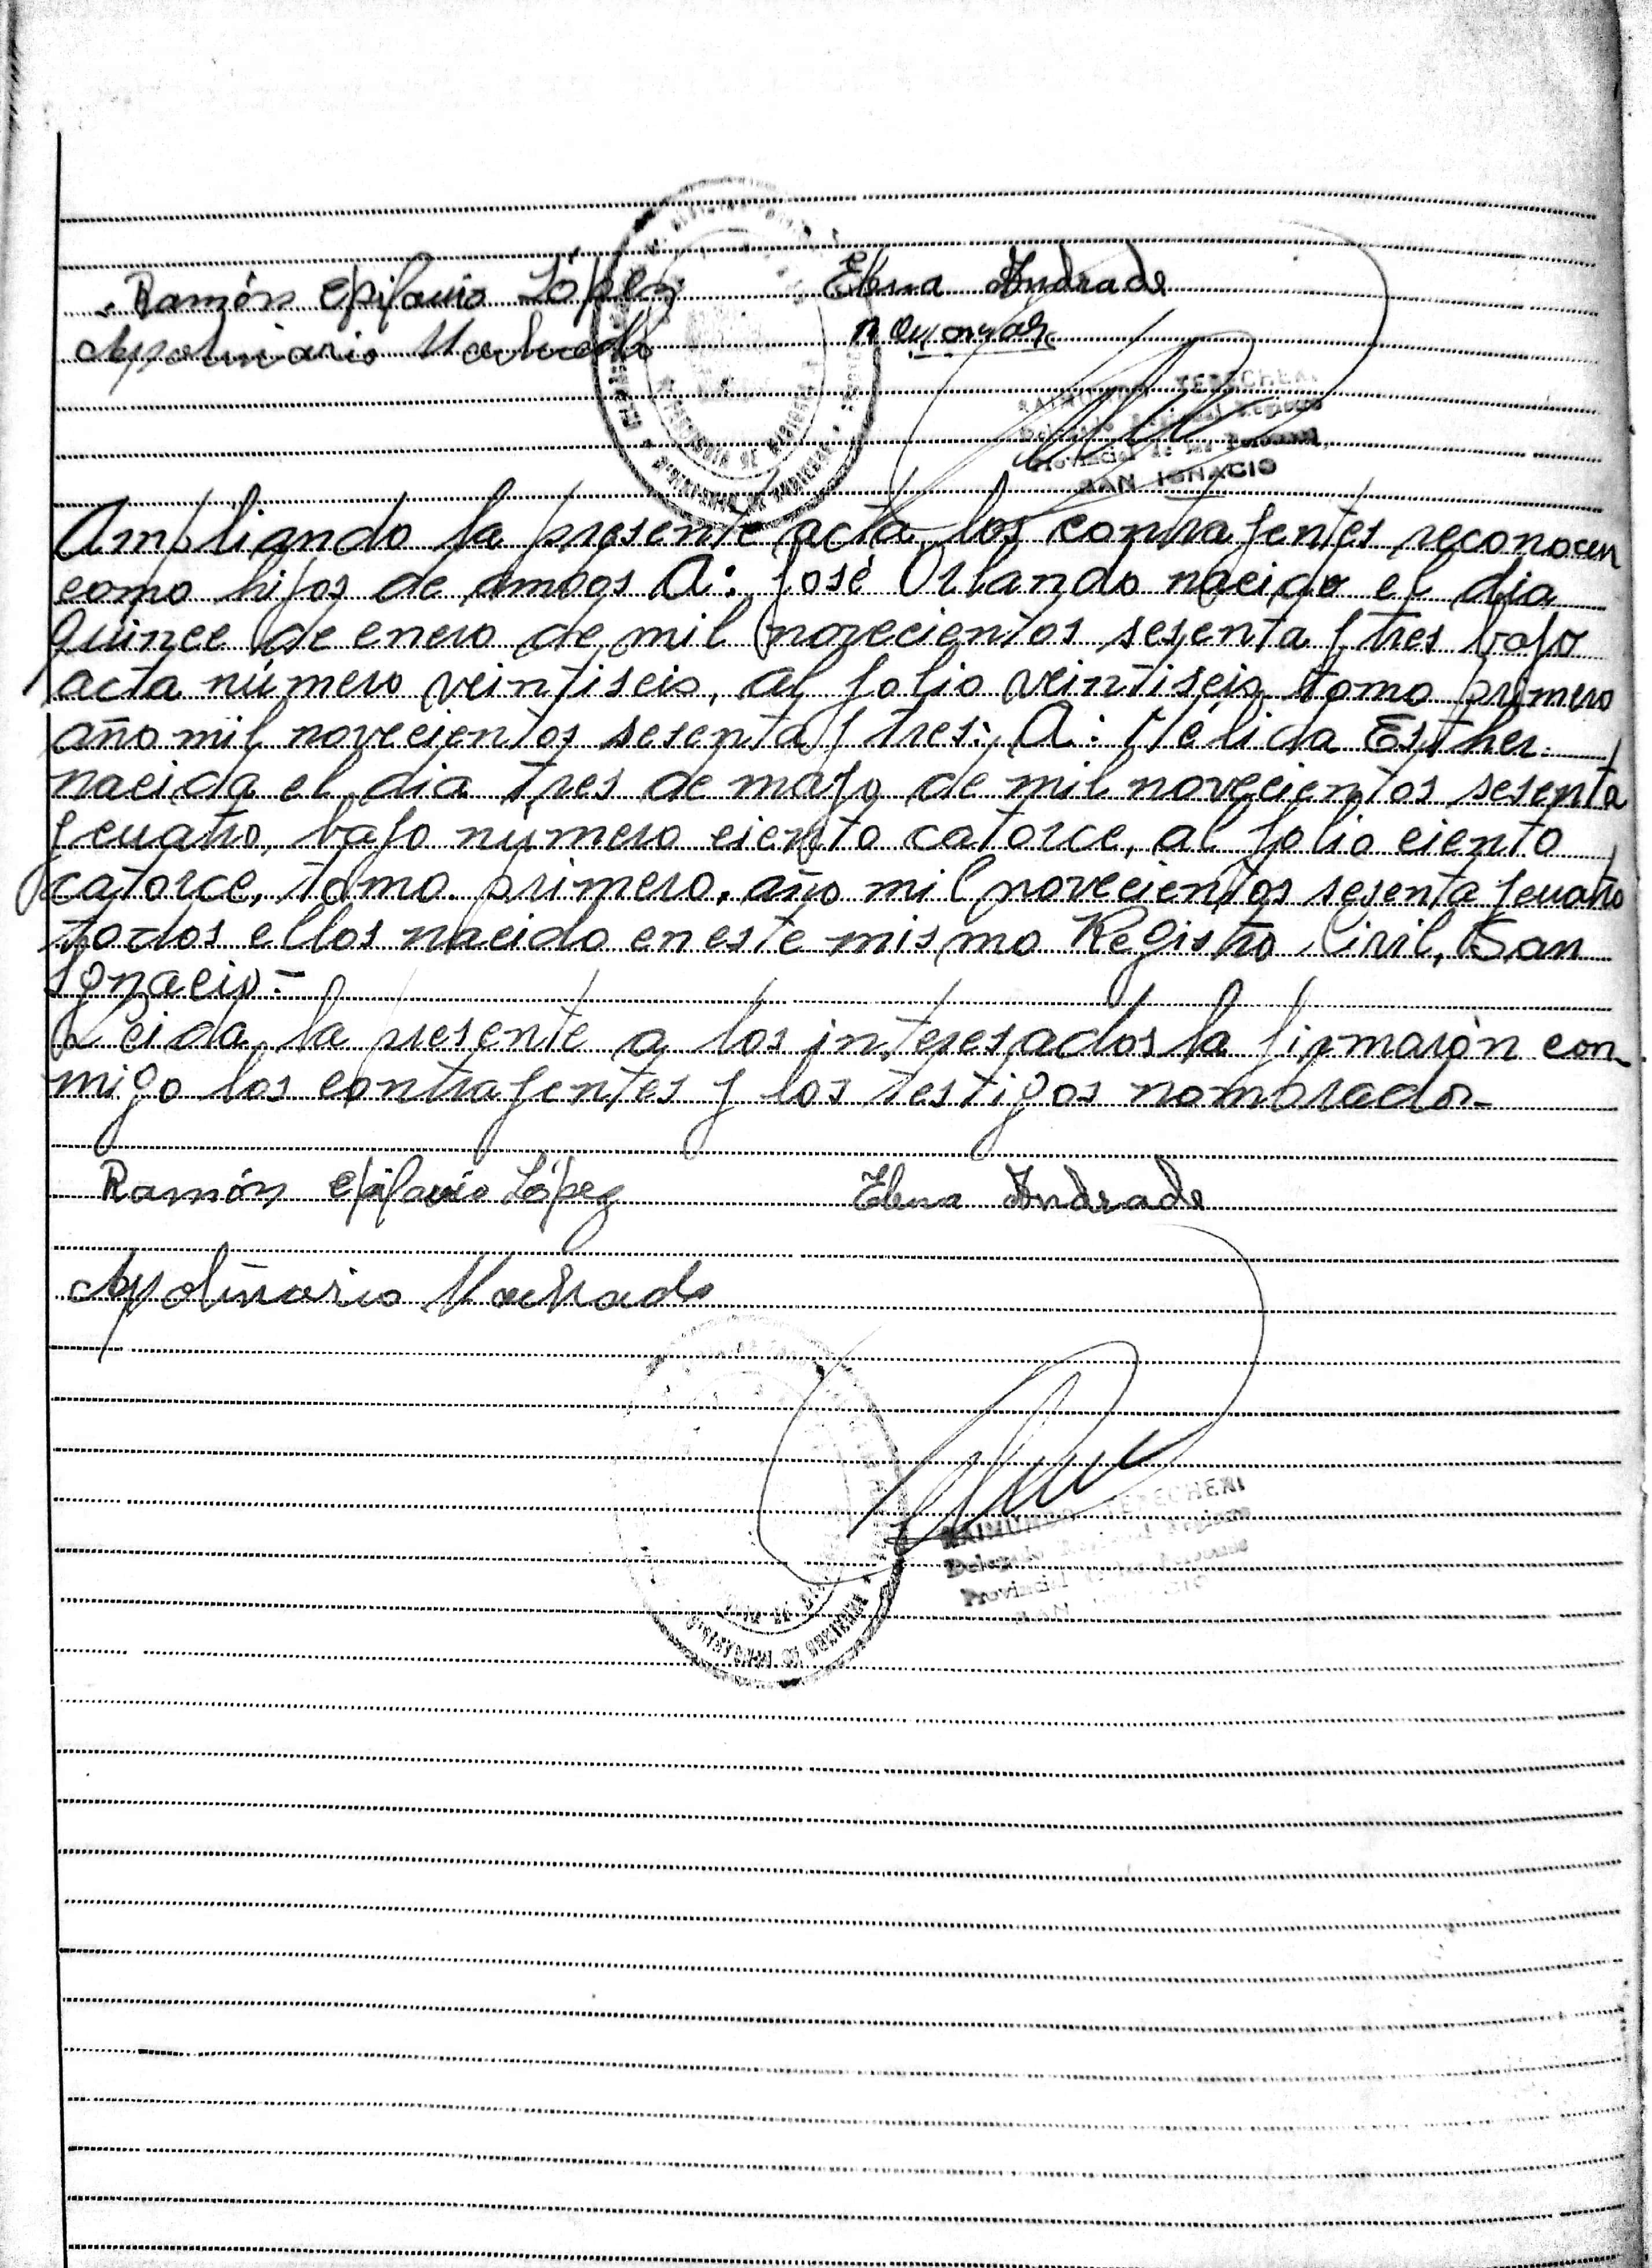 Ramón Epifanio López Elena Andrade
Apolinario Machado
RAIMUNDO TEPECHEM
Provincial de las Personas
SAN IGNACIO
Ampliando la presente acta, los contrayentes reconocen
como hijos de ambos A: José Orlando nacido el dia
quince de enero de mil novecientos sesenta y tres bajo
acta número veintiseis, al folio veintiseis tomo primero
año mil novecientos sesenta y tres: A: Nélida Esther
nacida el dia tres de mayo de mil novecientos sesenta
y cuatro, bajo número ciento catorce, al folio ciento
catorce, tomo primero, año mil novecientos sesenta y cuatro
todos ellos nacido en este mismo Registro Civil, San
Ignacio.-
Leida la presente a los interesados la firmarón con-
migo los contrayentes y los testigos nombrado-
Ramón Epifanio López Elena Andrade
Apolinario Machado
RAIMUNDO TEPECHEM
Delegado
Provincial